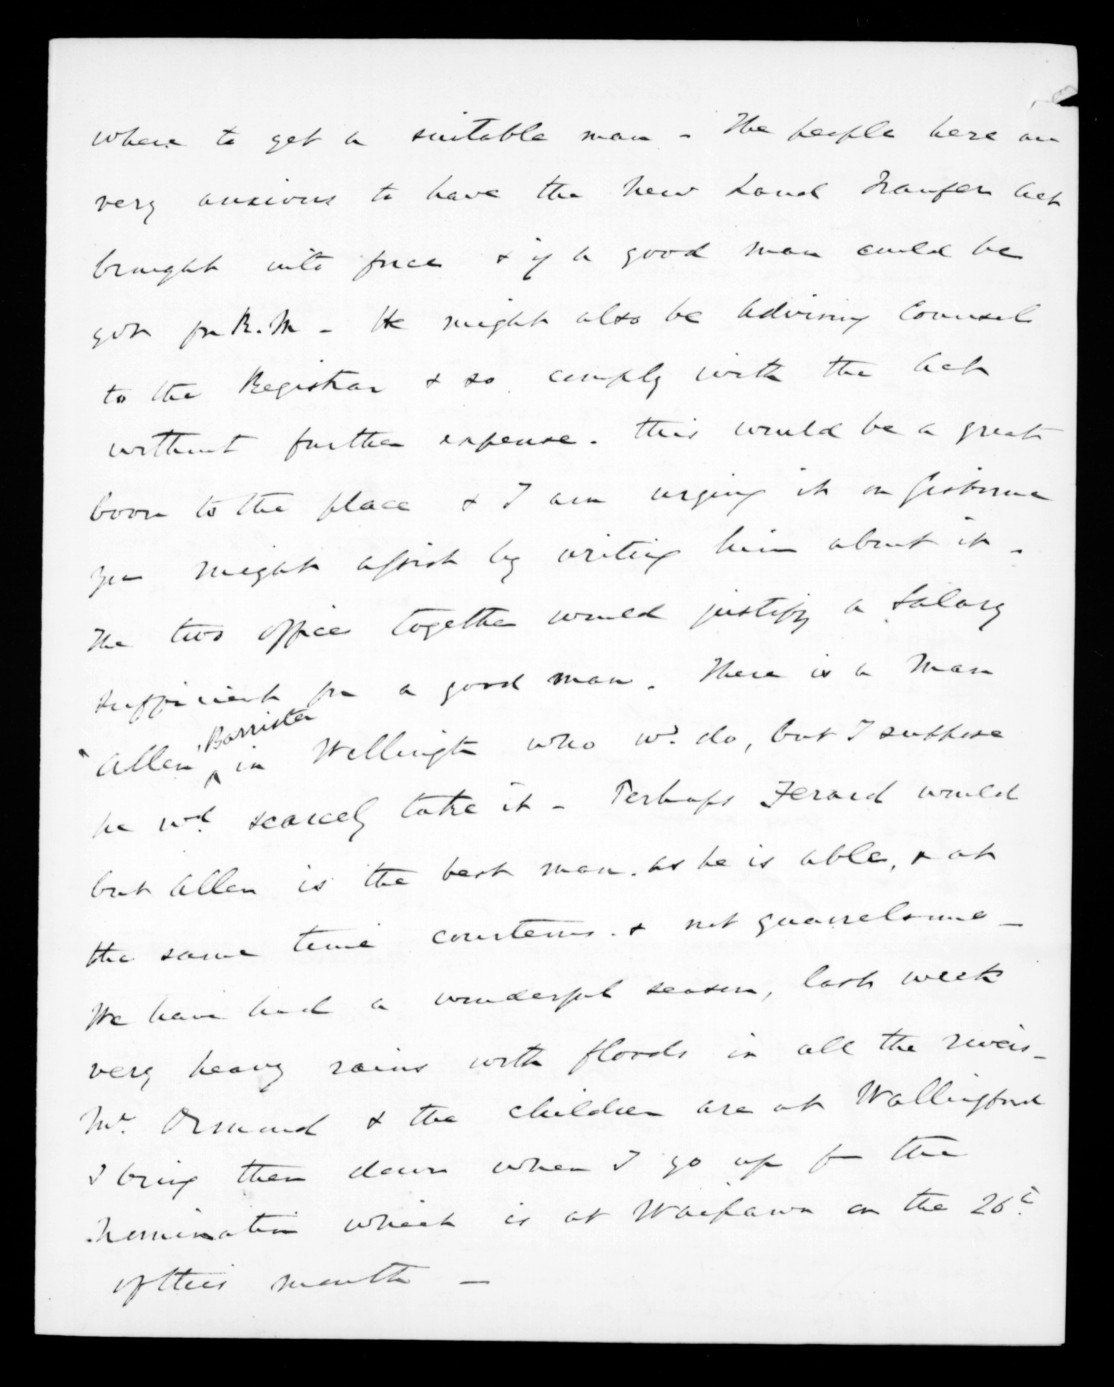 where to get a suitable man - The people here are
very anxious to have the New Land Transfer Act
brought into force & if a good man could be
got for R.M - He might also be Advising Counsel
to the Registrar & so comply with the Act
without further expense. this would be a great
boon to the place & I am urging it on Gisborne
you might assist by writing him about it.
The two offices together would justify a Salary
sufficient for a good man. There is a Man
Allen, Barrister in Wellington who wd. do, but I suppose
he wd scarcely take it - Perhaps Ferard would
but Allen is the best man. as he is able, & at
the same time courteous. & not quarrelsome -
We have had a wonderful season, last week
very heavy rains with floods in all the rivers -
Mrs. Ormond & the children are at Wallingford
I bring them down when I go up for the
Nomination which is at Waipawa on the 26th.
of this month -